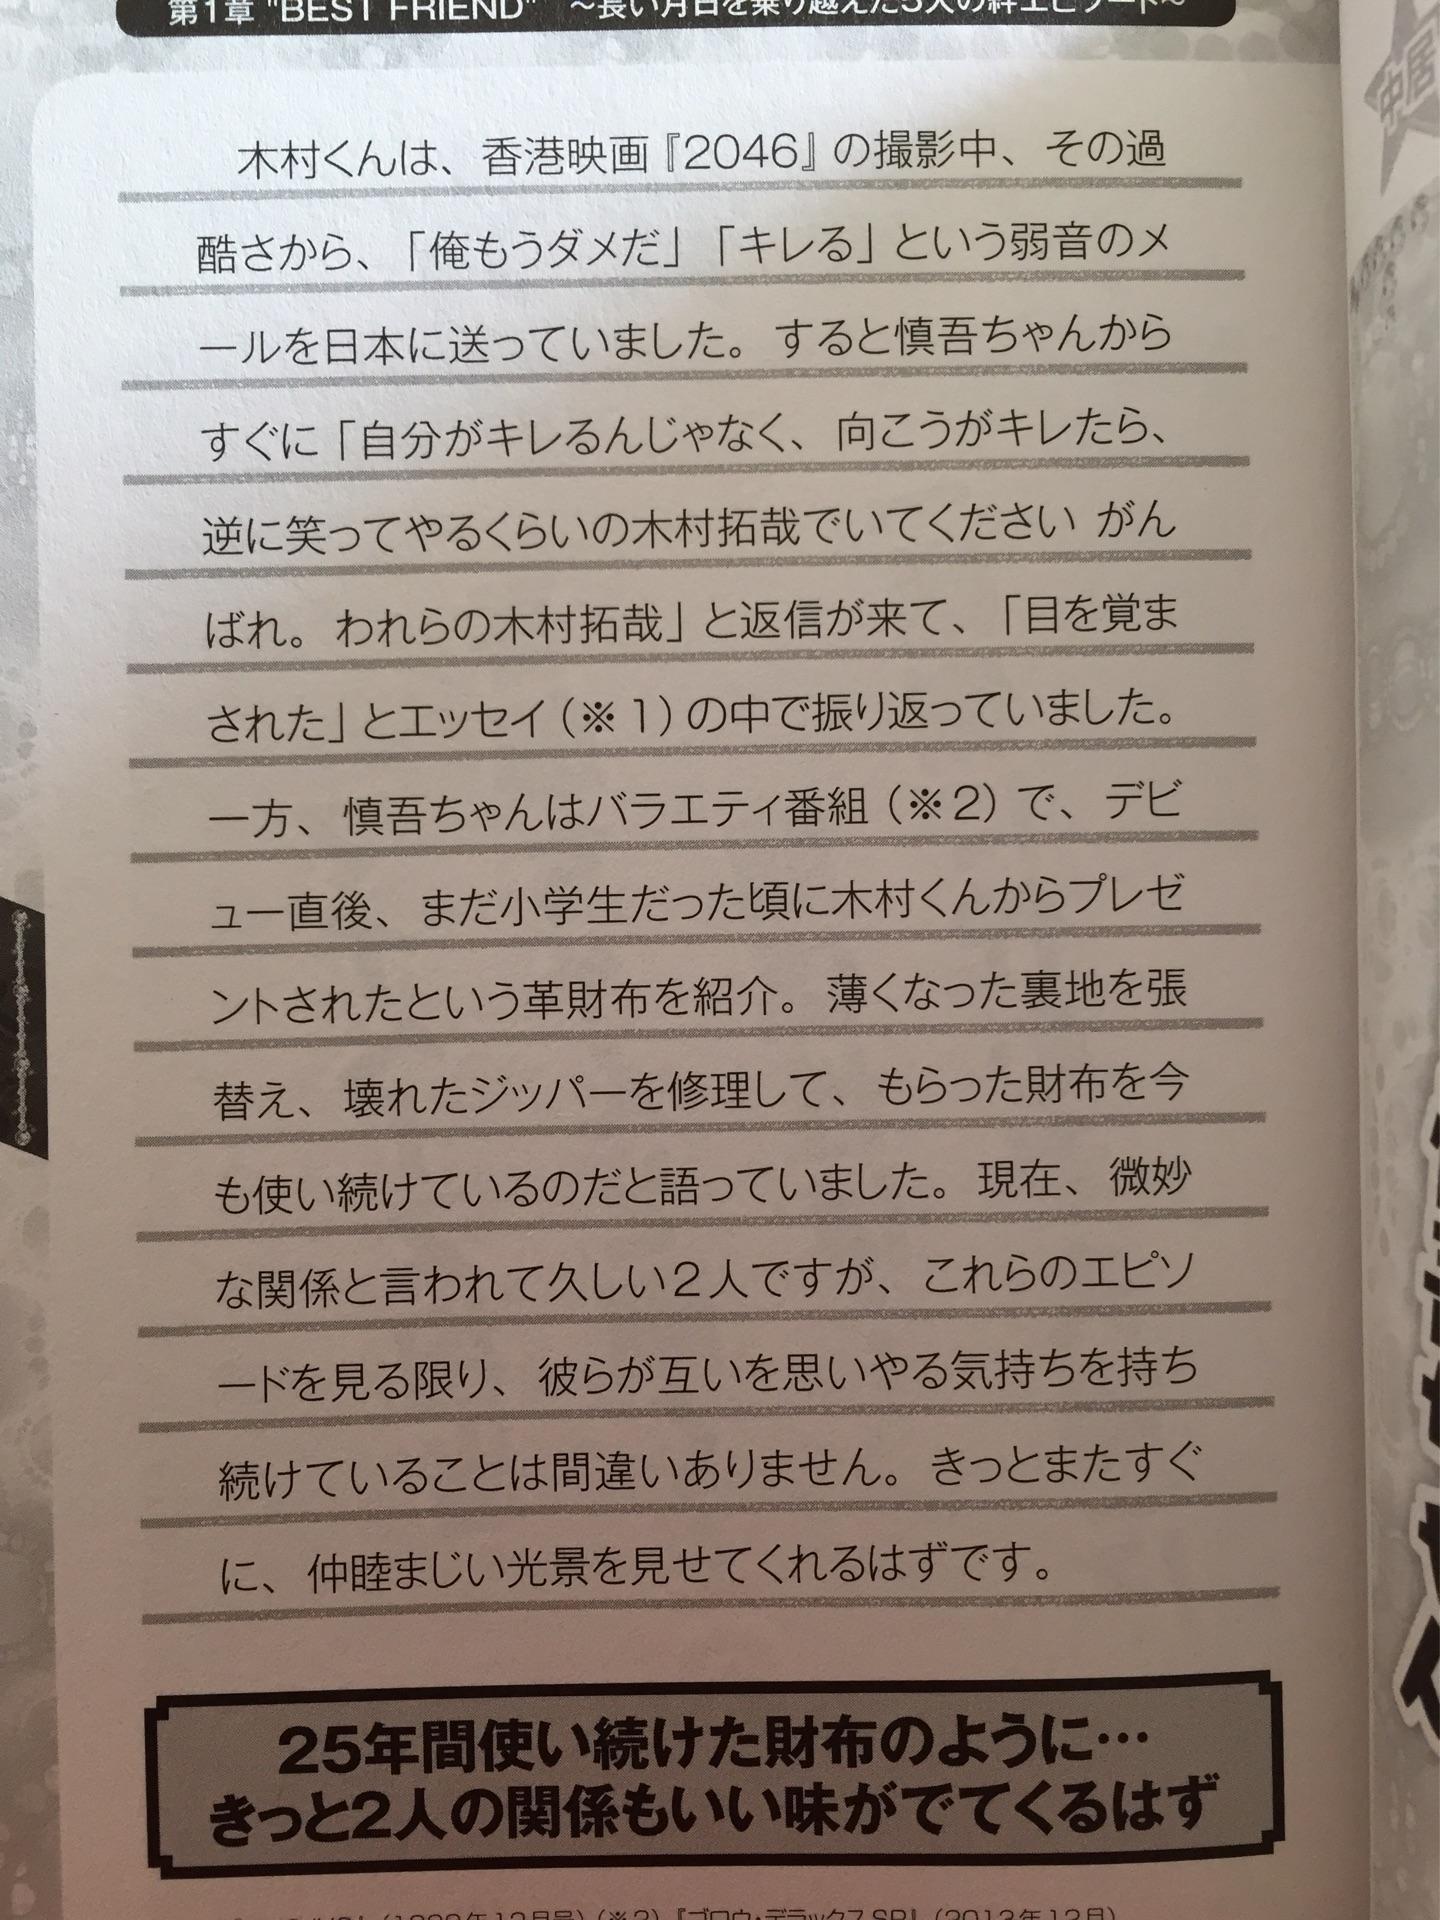 第1章 "BEST FRIEND" ～長い月日を乗り越えた5人の絆エピソード～
中居
木村くんは、香港映画『2046』の撮影中、その過
酷さから、「俺もうダメだ」「キレる」という弱音のメ
ールを日本に送っていました。すると慎吾ちゃんから
すぐに「自分がキレるんじゃなく、向こうがキレたら、
逆に笑ってやるくらいの木村拓哉でいてください がん
ばれ。われらの木村拓哉」と返信が来て、「目を覚ま
された」とエッセイ（※１）の中で振り返っていました。
一方、慎吾ちゃんはバラエティ番組（※２）で、デビ
ュー直後、まだ小学生だった頃に木村くんからプレゼ
ントされたという革財布を紹介。薄くなった裏地を張
替え、壊れたジッパーを修理して、もらった財布を今
も使い続けているのだと語っていました。現在、微妙
な関係と言われて久しい２人ですが、これらのエピソ
ードを見る限り、彼らが互いを思いやる気持ちを持ち
続けていることは間違いありません。きっとまたすぐ
に、仲睦まじい光景を見せてくれるはずです。
25年間使い続けた財布のように…
きっと2人の関係もいい味がでてくるはず
（※2）『ゴロウ・デラックスSP』（2013年12月）